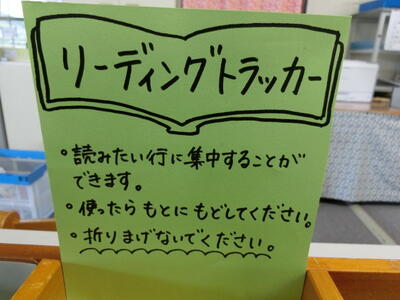 リーディングトラッカー
・読みたい行に集中することが
できます。
・使ったらもとにもどしてください。
・折りまげないでください。